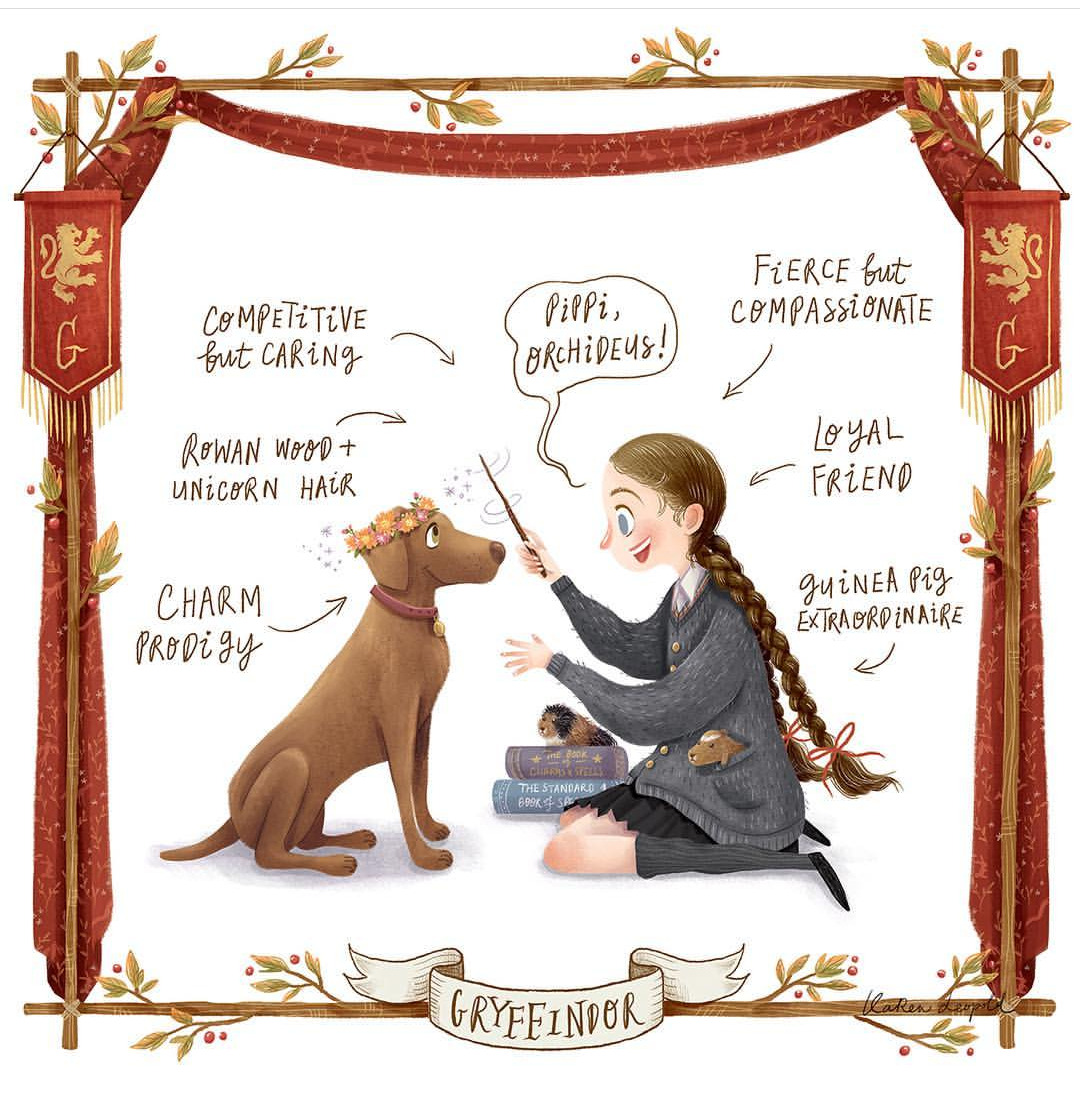 G
G
COMPETITIVE
but CARING
PIPPI,
ORCHIDEUS!
FIERCE but
COMPASSIONATE
ROWAN WOOD +
UNICORN HAIR
LOYAL
FRIEND
CHARM
PRODIGY
GUINEA PIG
EXTRAORDINAIRE
THE BOOK
of
CHARMS & SPELLS
THE STANDARD
BOOK of
GRYFFINDOR
Karen Leopold